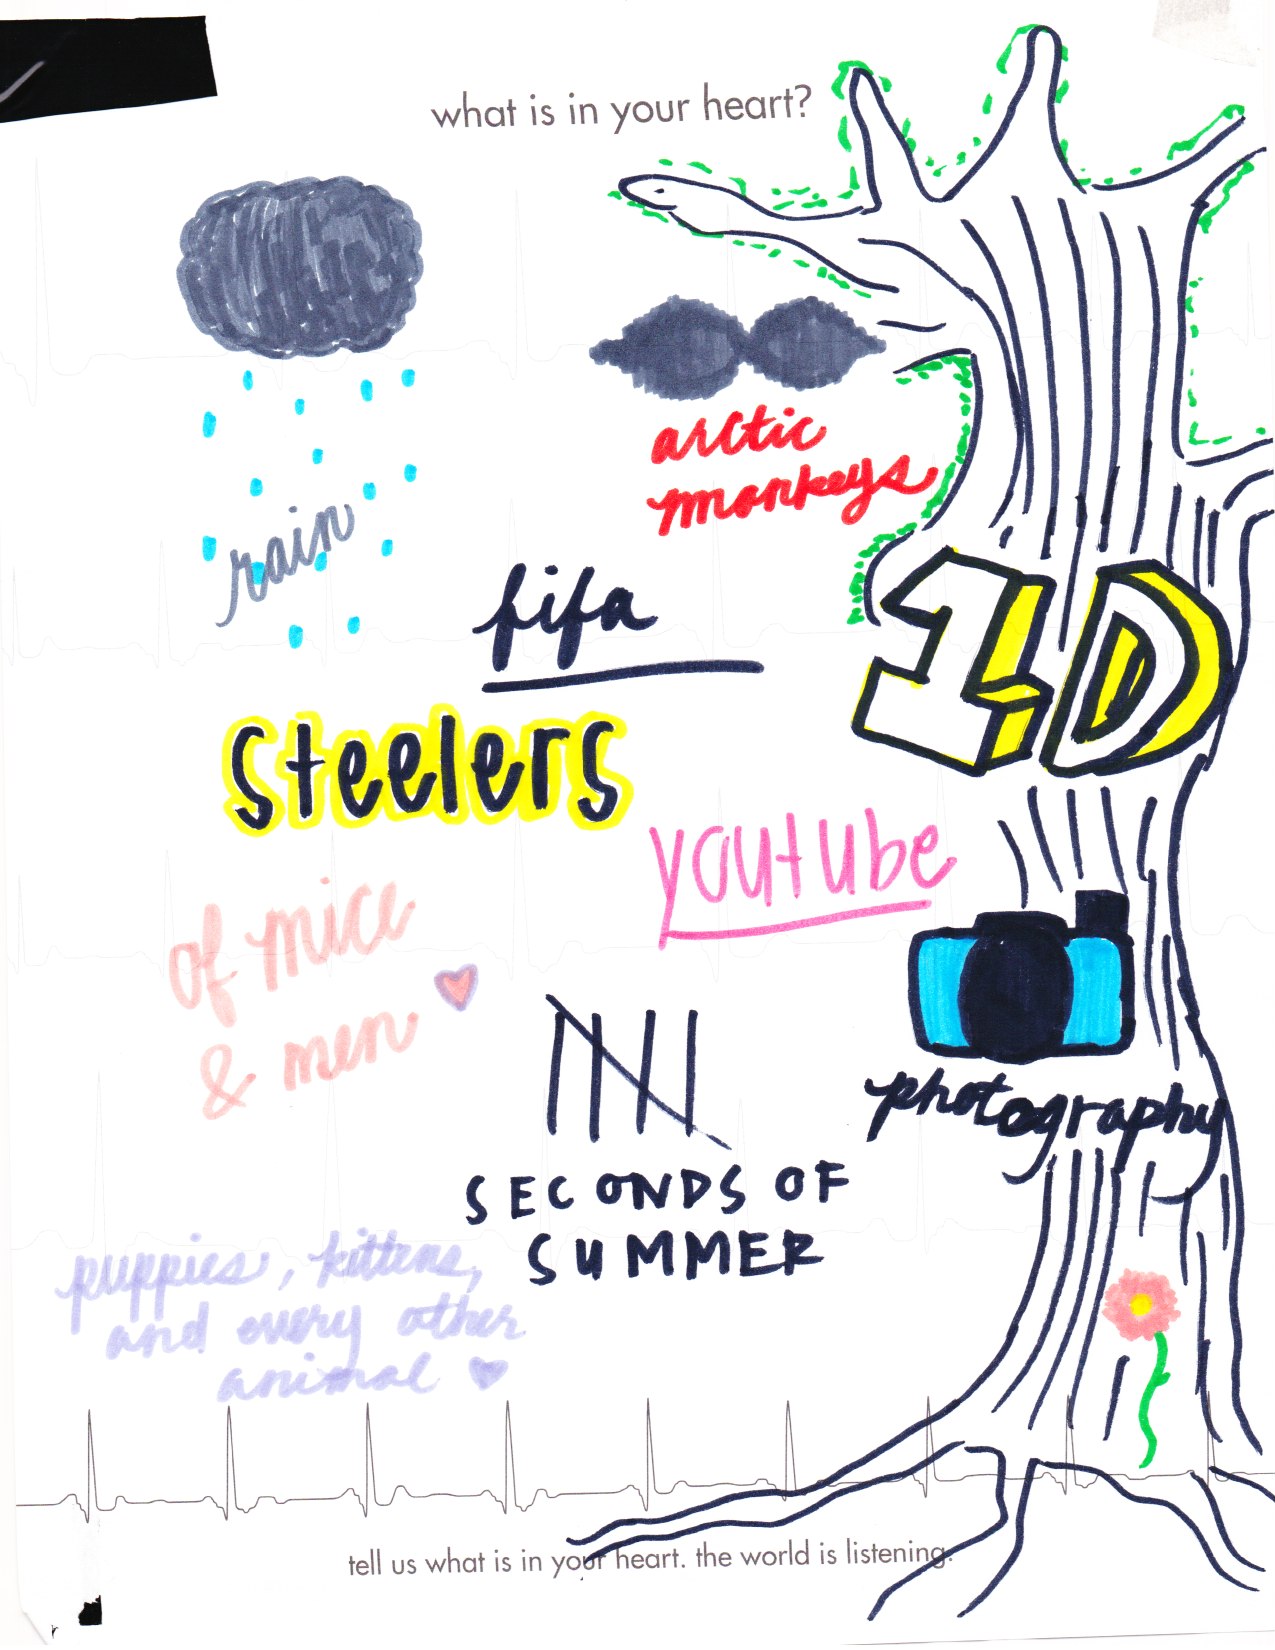 what is in your heart?
arctic
monkeys
rain
fifa
1D
steelers
youtube
of mice
& men
photography
SECONDS OF
SUMMER
puppies, kittens,
and every other
animal
tell us what is in your heart. the world is listening.